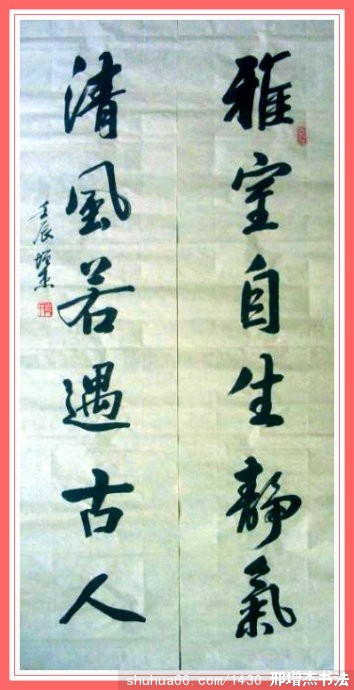 雅室自生靜氣
清風若遇古人
壬辰增杰
shuhua66.com/1430 邢增杰书法